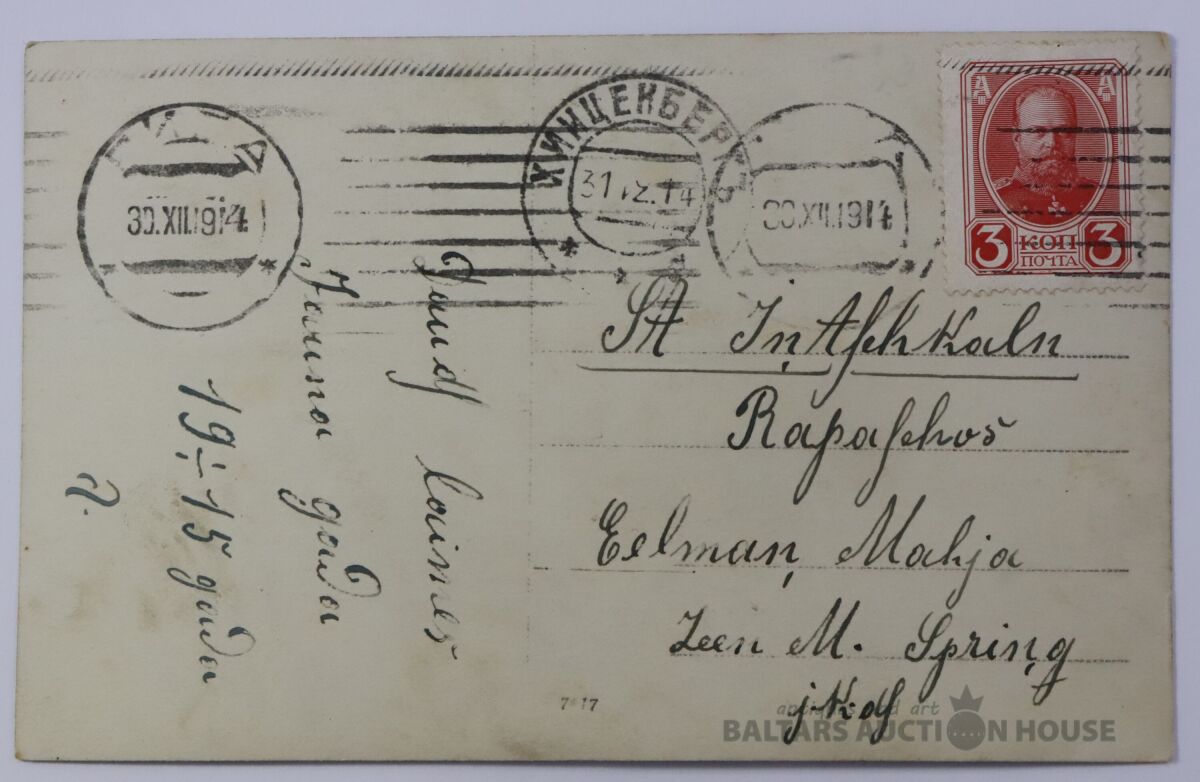 РИГА
30.XII.1914
ХИНЦЕНБЕРГЪ
31 12.14
30.XII.1914
3 КОП 3
ПОЧТА
Daudſ laimes
Jauna gada
19-15 gada
St Inzſchkaln
Rapaſchos
Eelman Mahja
Zeen M. Spring
jkdſ
7 17
antiques and art
BALTARS AUCTION HOUSE